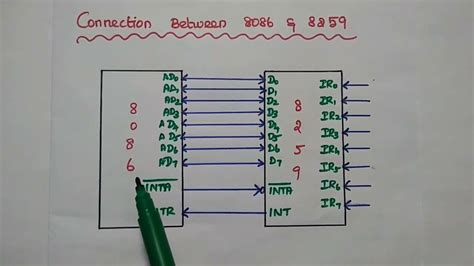 Connection Between 8086 & 8259
AD0 D0 IR0
AD1 D1
AD2 D2 IR1
8 AD3 D3 8 IR2
0 AD4 D4 2 IR3
AD5 D5
8 AD6 D6 5 IR4
6 AD7 D7 9 IR5
INTA INTA IR6
INT IR7